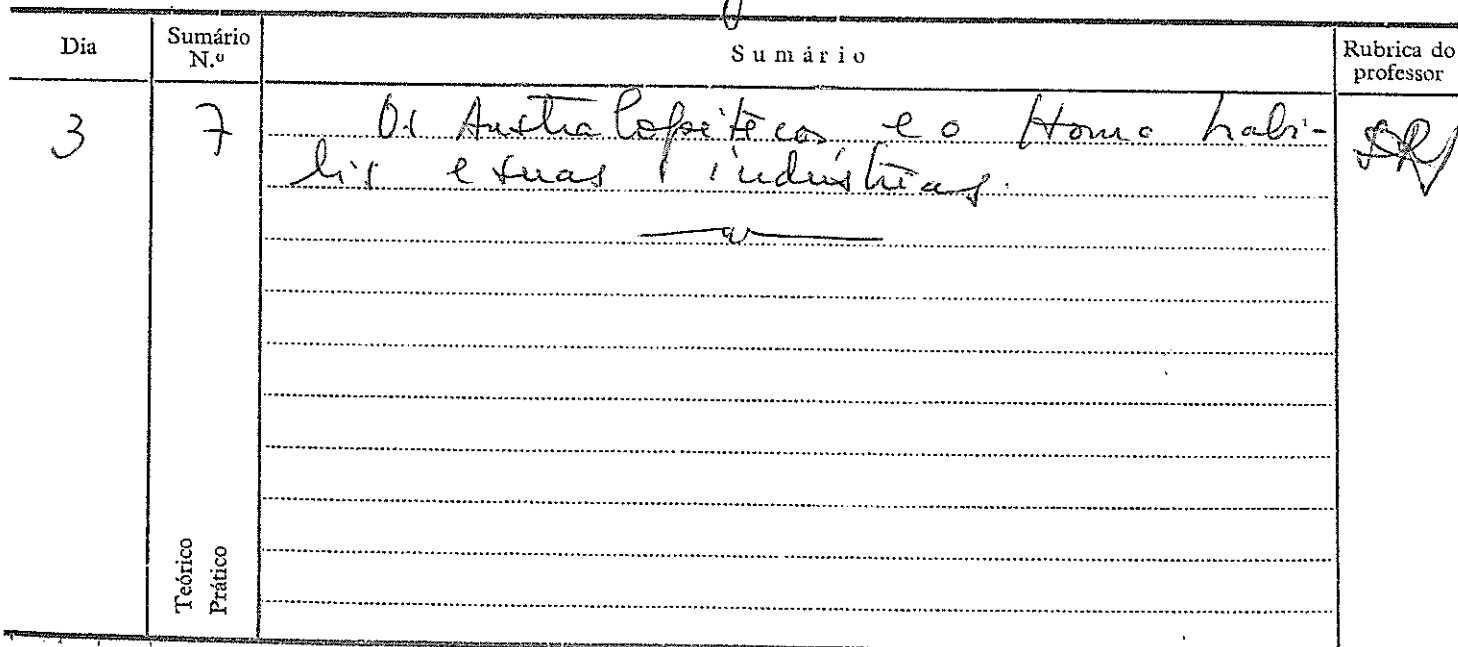 Dia Sumário N.º Sumário Rubrica do professor
3 7 Os Australopitecos e o Homo habi-
lis e suas indústrias.
Teórico
Prático